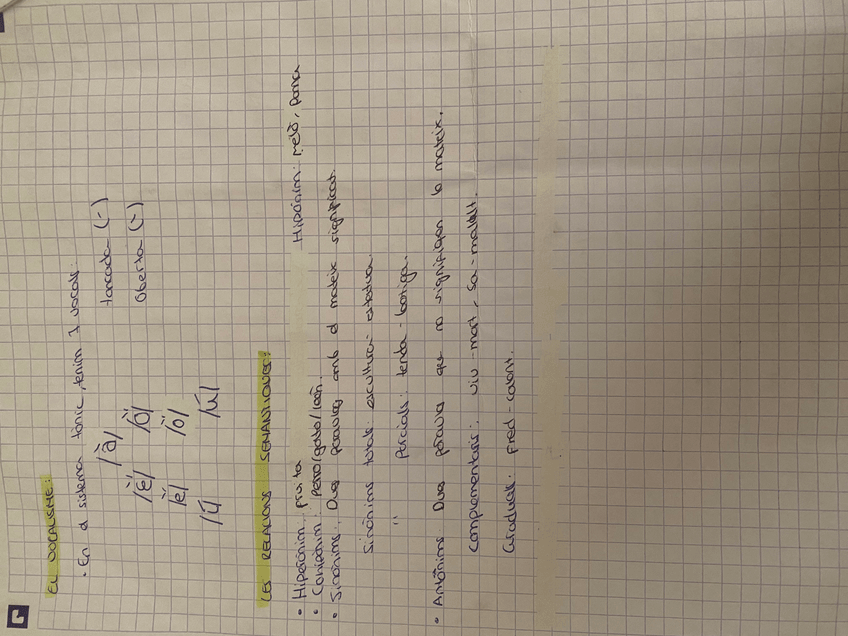 EL VOCALISME:
· En el sistema tònic, tenim 7 vocals:
/à/ tancada (-)
/è/ /ò/ Oberta (-)
/é/ /ó/
/í/ /ú/
LES RELACIONS SEMANTIQUES:
• Hiperònim: fruita Hipònim: meló, poma
• Cohipònim: Perro/gato/león.
• Sinònims: Dues paraules amb el mateix significat.
Sinònims totals: escultura: estatua.
" Parcials: tenda - botiga.
• Antònims: Dues paraules que no signifiquen lo mateix.
Complementaris: viu - mort, Sa - malalt.
Graduals: fred - calent.